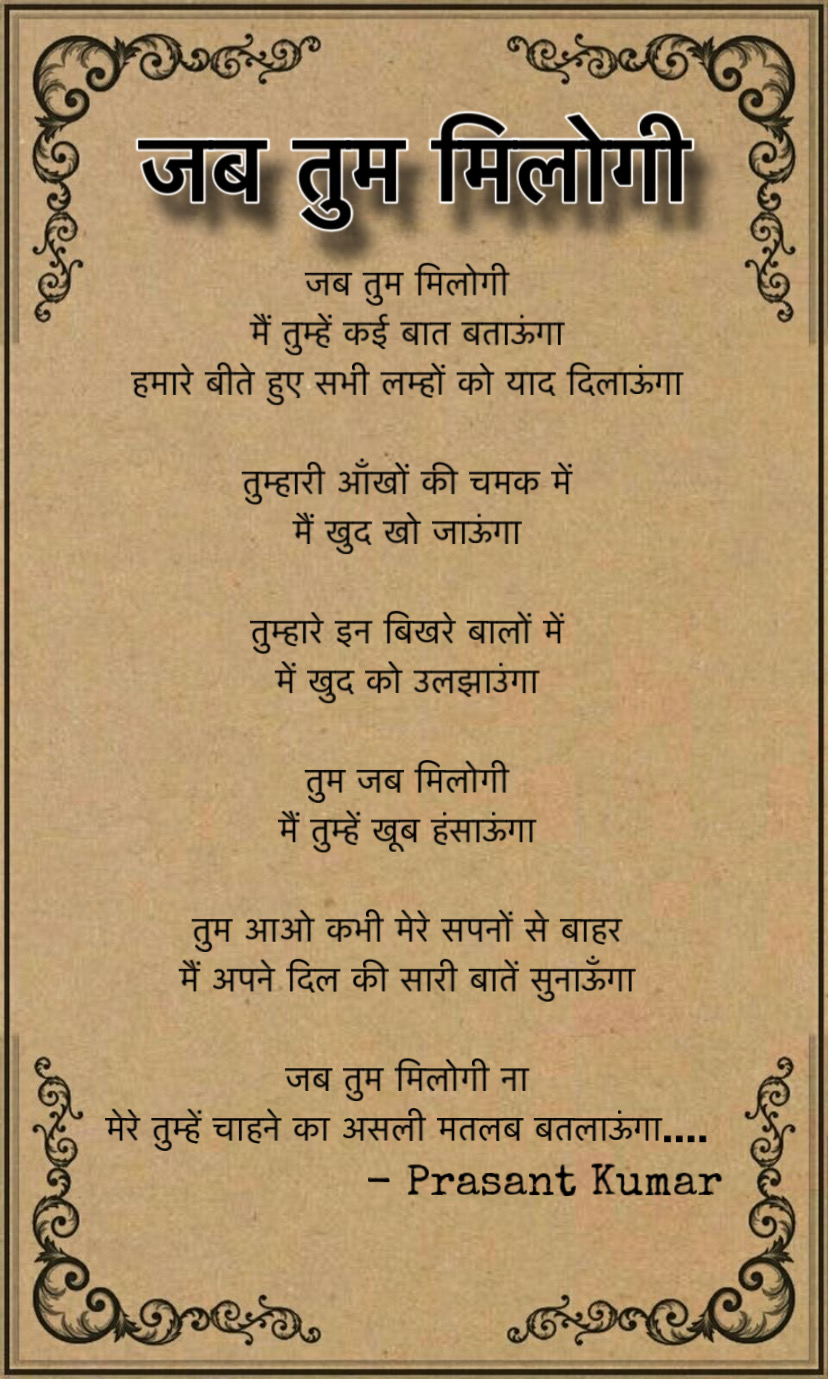 जब तुम मिलोगी
जब तुम मिलोगी
मैं तुम्हें कई बात बताऊंगा
हमारे बीते हुए सभी लम्हों को याद दिलाऊंगा
तुम्हारी आँखों की चमक में
मैं खुद खो जाऊंगा
तुम्हारे इन बिखरे बालों में
में खुद को उलझाउंगा
तुम जब मिलोगी
मैं तुम्हें खूब हंसाऊंगा
तुम आओ कभी मेरे सपनों से बाहर
मैं अपने दिल की सारी बातें सुनाऊँगा
जब तुम मिलोगी ना
मेरे तुम्हें चाहने का असली मतलब बतलाऊंगा....
- Prasant Kumar